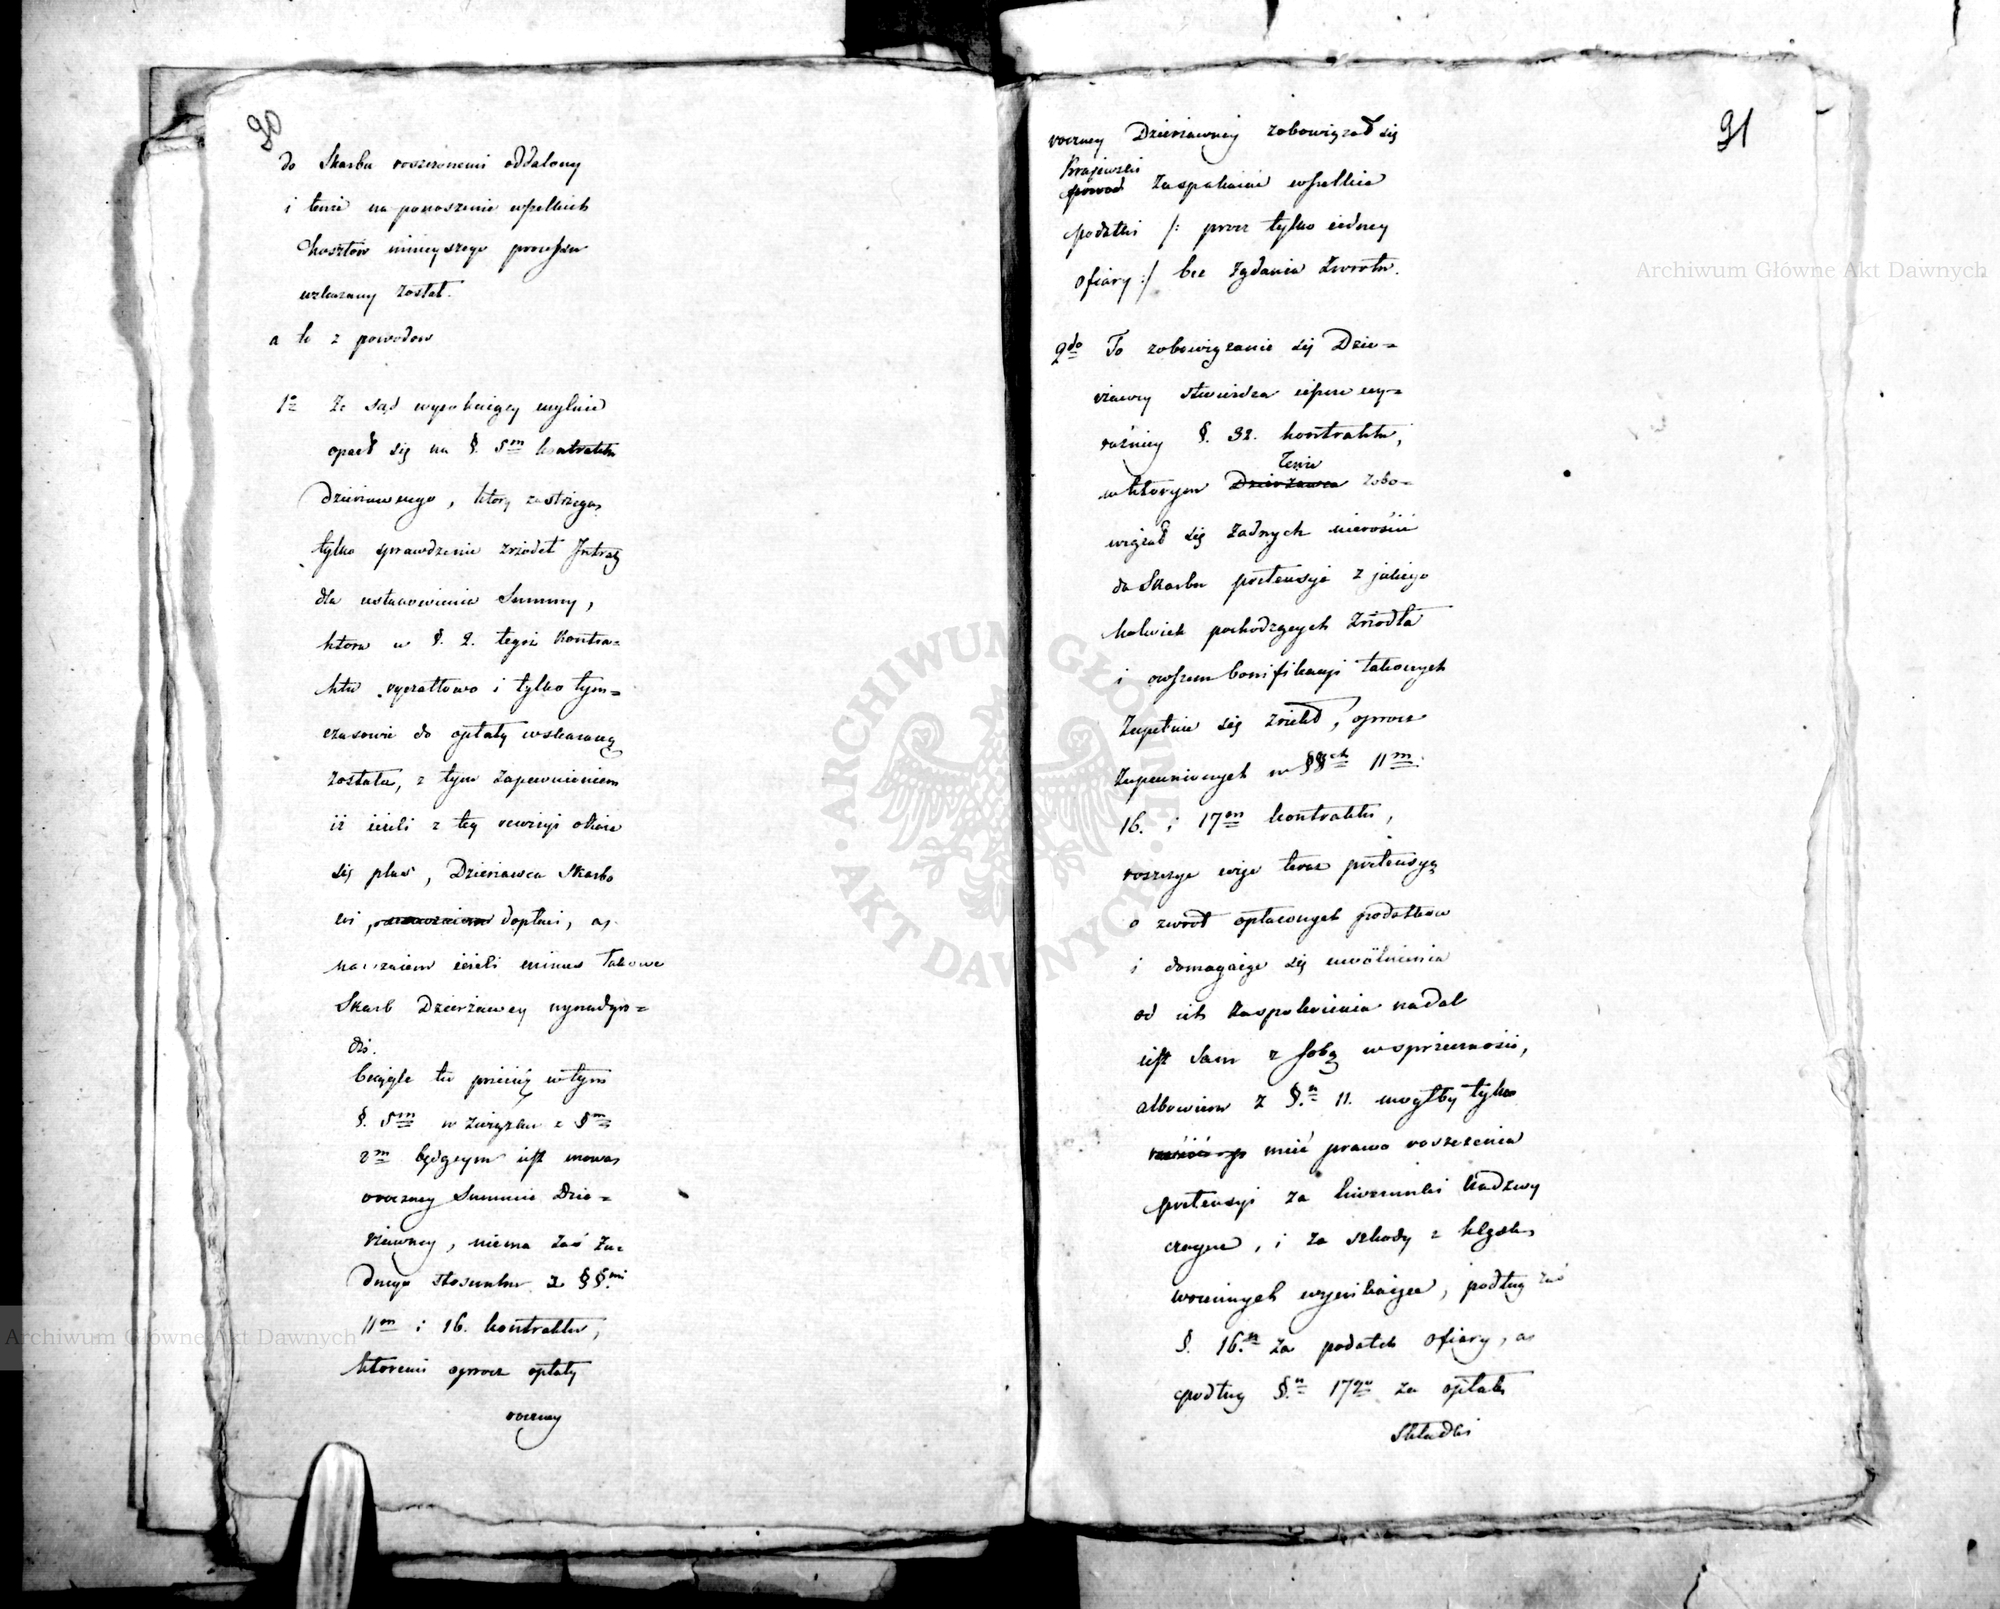 90
do Skarbu roszczeniami oddalony
i tenże na ponoszenie wszelkich
kosztów ninieyszego processu
wskazany został.
a to z powodow
1º Że sąd wyrokuiący mylnie
oparł się na §. 5m kontraktu
dzierżawnego, który zastrzega
tylko sprawdzenie zrzódeł Intraty
dla ustanowienia Summy,
która w §. 2. tegoż Kontra=
ktu ryczałtowo i tylko tym=
czasowie do opłaty wskazaną
została, z tym zapewnieniem
iż ieżeli z tey rewizyi okaże
się plus, Dzierżawca Skarbo
wi dopłaci, a
nawzaiem ieżeli minus takowe
Skarb Dzierżawcy wynadgro=
dzi.
Ciągle tu przeciéż w tym
§. 5m w związku z §m
2m będącym iest mowa
o roczney Summie Dzie=
rżawney, niema zaś ża=
dnego stosunku z §§mi
11m i 16. kontraktu,
któremi oprócz opłaty
roczney
91
roczney Dzierżawney zobowiązał się
Krajewski
powod zaspakaiać wszelkie
podatki /: prócz tylko iedney
Ofiary :/ bez żądania zwrotu.
2do To zobowiązanie się Dzie=
rżawcy stwierdza ieszcze wy=
raźniey §. 32. kontraktu,
Tenże
w którym Dzierżawca zobo=
wiązał się żadnych nierościć
do Skarbu pretensyi z jakiego
kolwiek pochodzących źrzódła
i owszem bonifikacyi takowych
zupełnie się zrzekł, oprócz
zapewnionych w §§ch 11m
16. i 17m kontraktu,
roszcząc więc teraz pretensyą
o zwrot opłaconych podatków
i domagaiąc się uwolnienia
od ich zaspokoienia nadal
iest sam z sobą w sprzeczności,
albowiem z §.n 11. mógłby tylko
mieć prawo roszczenia
pretensyi za kwerunki
i za szkody z klęsk
woiennych wynikaiące, podług zaś
§. 16.n za podatek ofiary, a
podług §.n 17go za opłatę
składki
Archiwum Główne Akt Dawnych
Archiwum Główne Akt Dawnych
ARCHIWUM GŁÓWNE · AKT DAWNYCH ·